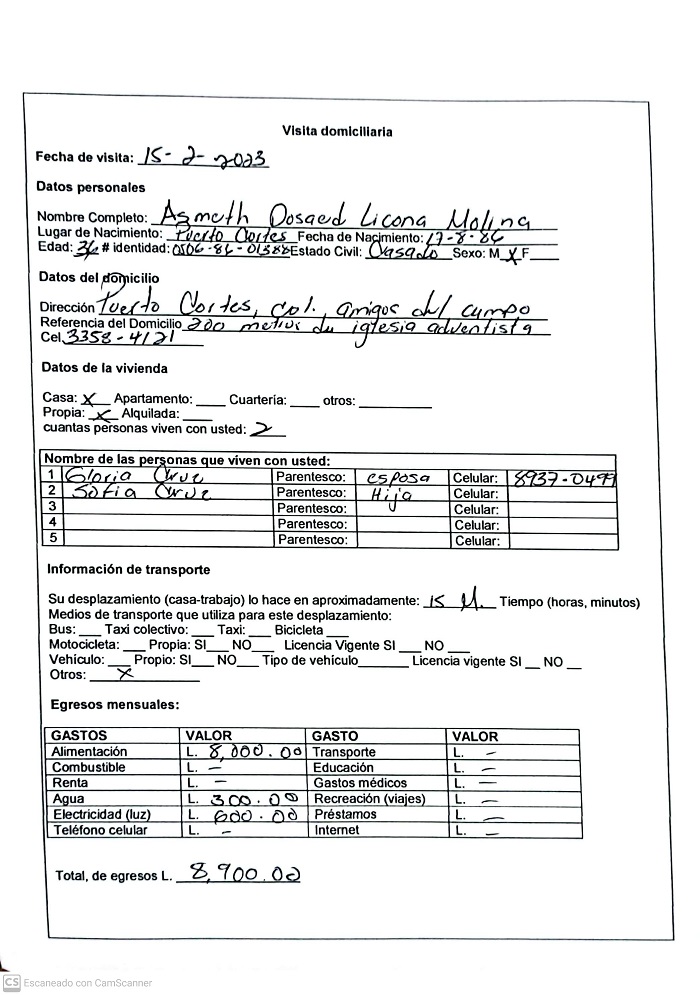 Visita domiciliaria
Fecha de visita: 15-2-2023
Datos personales
Nombre Completo: Azmeth Dosaed Licona Molina
Lugar de Nacimiento: Puerto Cortes Fecha de Nacimiento: 17-8-86
Edad: 36 # identidad: 0506-86-01388 Estado Civil: Casado Sexo: M X F
Datos del domicilio
Dirección Puerto Cortes, col. amigos del campo
Referencia del Domicilio 200 metros de iglesia adventista
Cel. 3358-4121
Datos de la vivienda
Casa: X Apartamento: ____ Cuartería: ____ otros: ____
Propia: X Alquilada: ____
cuantas personas viven con usted: 2
Nombre de las personas que viven con usted:
1 Gloria Cruz Parentesco: esposa Celular: 8937-0499
2 Sofia Cruz Parentesco: Hija Celular:
3 Parentesco: Celular:
4 Parentesco: Celular:
5 Parentesco: Celular:
Información de transporte
Su desplazamiento (casa-trabajo) lo hace en aproximadamente: 15 M. Tiempo (horas, minutos)
Medios de transporte que utiliza para este desplazamiento:
Bus: ___ Taxi colectivo: ___ Taxi: ___ Bicicleta ___
Motocicleta: ___ Propia: SI___ NO___ Licencia Vigente SI ___ NO ___
Vehículo: ___ Propio: SI___ NO___ Tipo de vehículo_______ Licencia vigente SI __ NO __
Otros: X
Egresos mensuales:
GASTOS VALOR GASTO VALOR
Alimentación L. 8,000.00 Transporte L. –
Combustible L. – Educación L. –
Renta L. – Gastos médicos L. –
Agua L. 300.00 Recreación (viajes) L. –
Electricidad (luz) L. 600.00 Préstamos L. –
Teléfono celular L. – Internet L. –
Total, de egresos L. 8,900.00
CS Escaneado con CamScanner